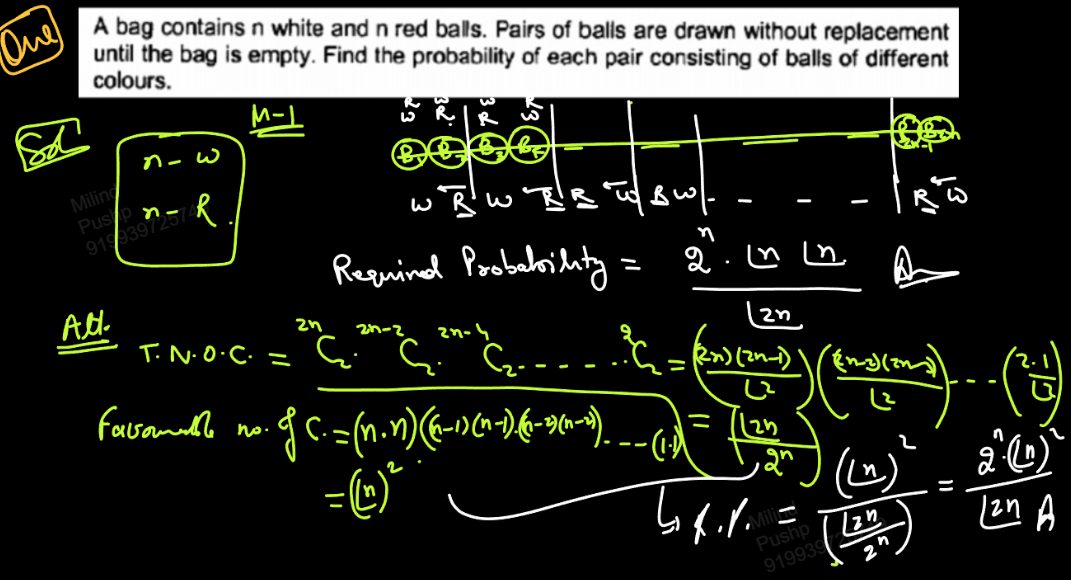 One
A bag contains n white and n red balls. Pairs of balls are drawn without replacement
until the bag is empty. Find the probability of each pair consisting of balls of different
colours.
Sol
M-1
R W W R
W R R W
n - W
n - R
B₁ B₂ B₃ B₄ - - - - B2n-1 B2n
W R W R R W B W - - - - R W
Milind
Pushp
919939972574
Required Probability = 2ⁿ . ⌊n ⌊n / ⌊2n A
Alt.
T. N. O. C. = ²ⁿC₂ . ²ⁿ⁻²C₂ . ²ⁿ⁻⁴C₂ - - - - - . ²C₂ = ((2n)(2n-1) / ⌊2) ((2n-2)(2n-3) / ⌊2) - - - (2.1 / ⌊2)
= (⌊2n / 2ⁿ)
Favourable no. of C. = (n.n)((n-1)(n-1).(n-2)(n-2)) - - - - (1.1)
= (⌊n)²
↳ R.P. = (⌊n)² / (⌊2n / 2ⁿ) = 2ⁿ.(⌊n)² / ⌊2n A
Milind
Pushp